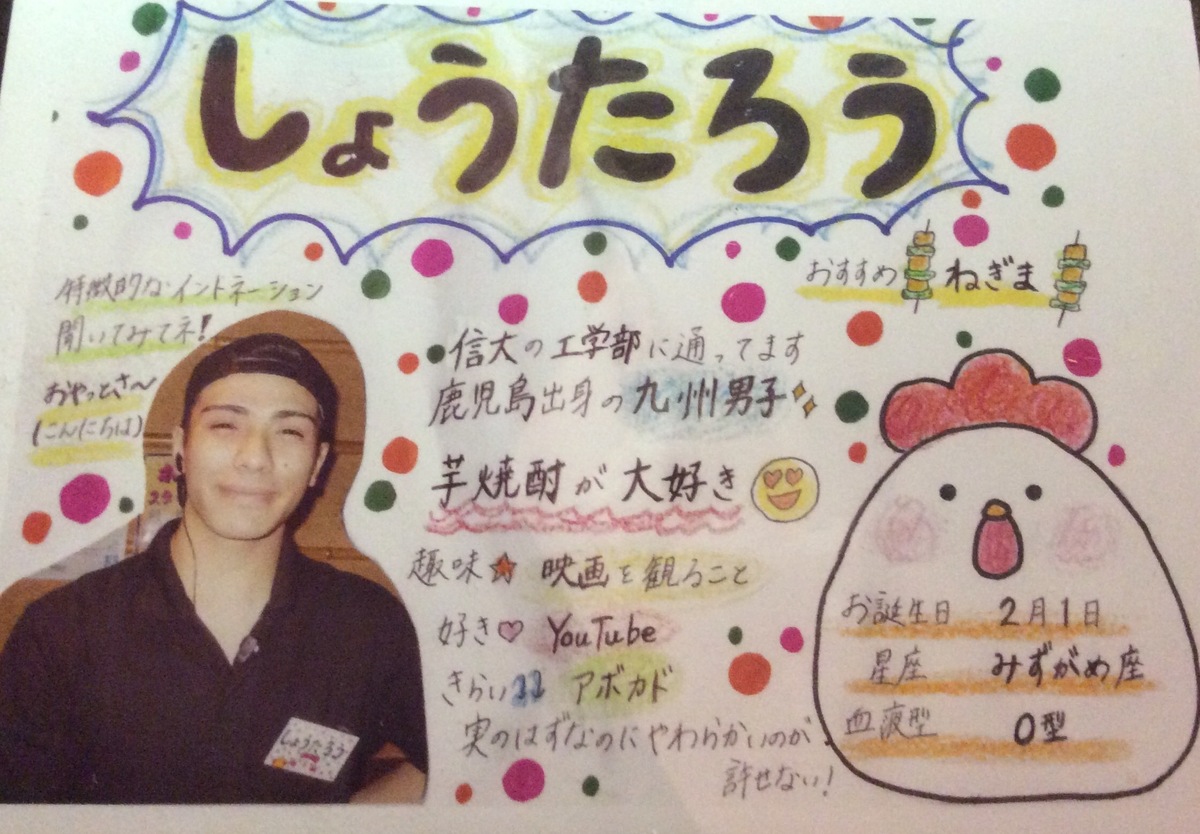 しょうたろう
特徴的なイントネーション
聞いてみてネ!
おやっとさ〜
(こんにちは)
おすすめ ねぎま
信大の工学部に通ってます
鹿児島出身の九州男子
芋焼酎が大好き
趣味★ 映画を観ること
好き♡ YouTube
きらい アボカド
実のはずなのにやわらかいのが
許せない!
お誕生日 2月1日
星座 みずがめ座
血液型 O型
しょうたろう